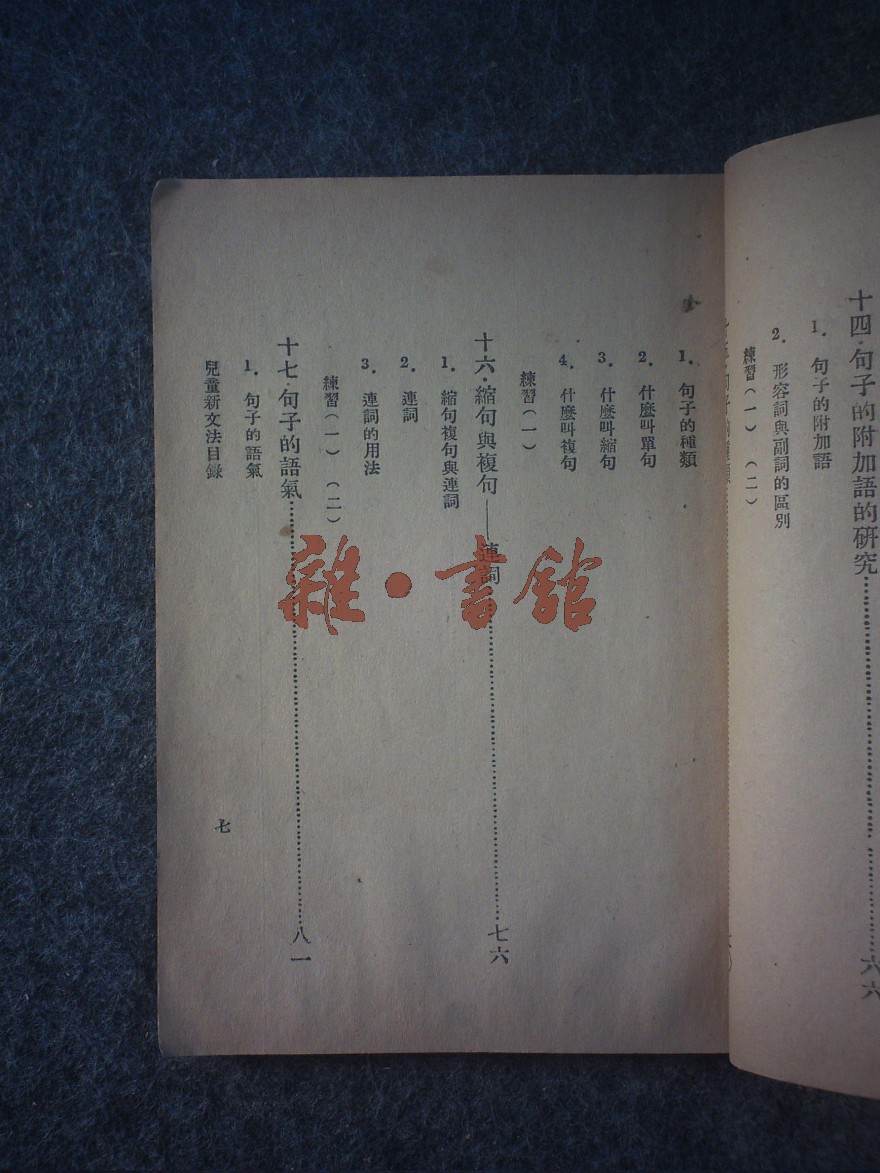 十四·句子的附加語的硏究……六六
1. 句子的附加語
2. 形容詞與副詞的區別
練習(一)(二)
1. 句子的種類
2. 什麼叫單句
3. 什麼叫縮句
4. 什麼叫複句
練習(一)
十六·縮句與複句——連詞……七六
1. 縮句複句與連詞
2. 連詞
3. 連詞的用法
練習(一)(二)
十七·句子的語氣……八一
1. 句子的語氣
兒童新文法目錄
七
雜·書館